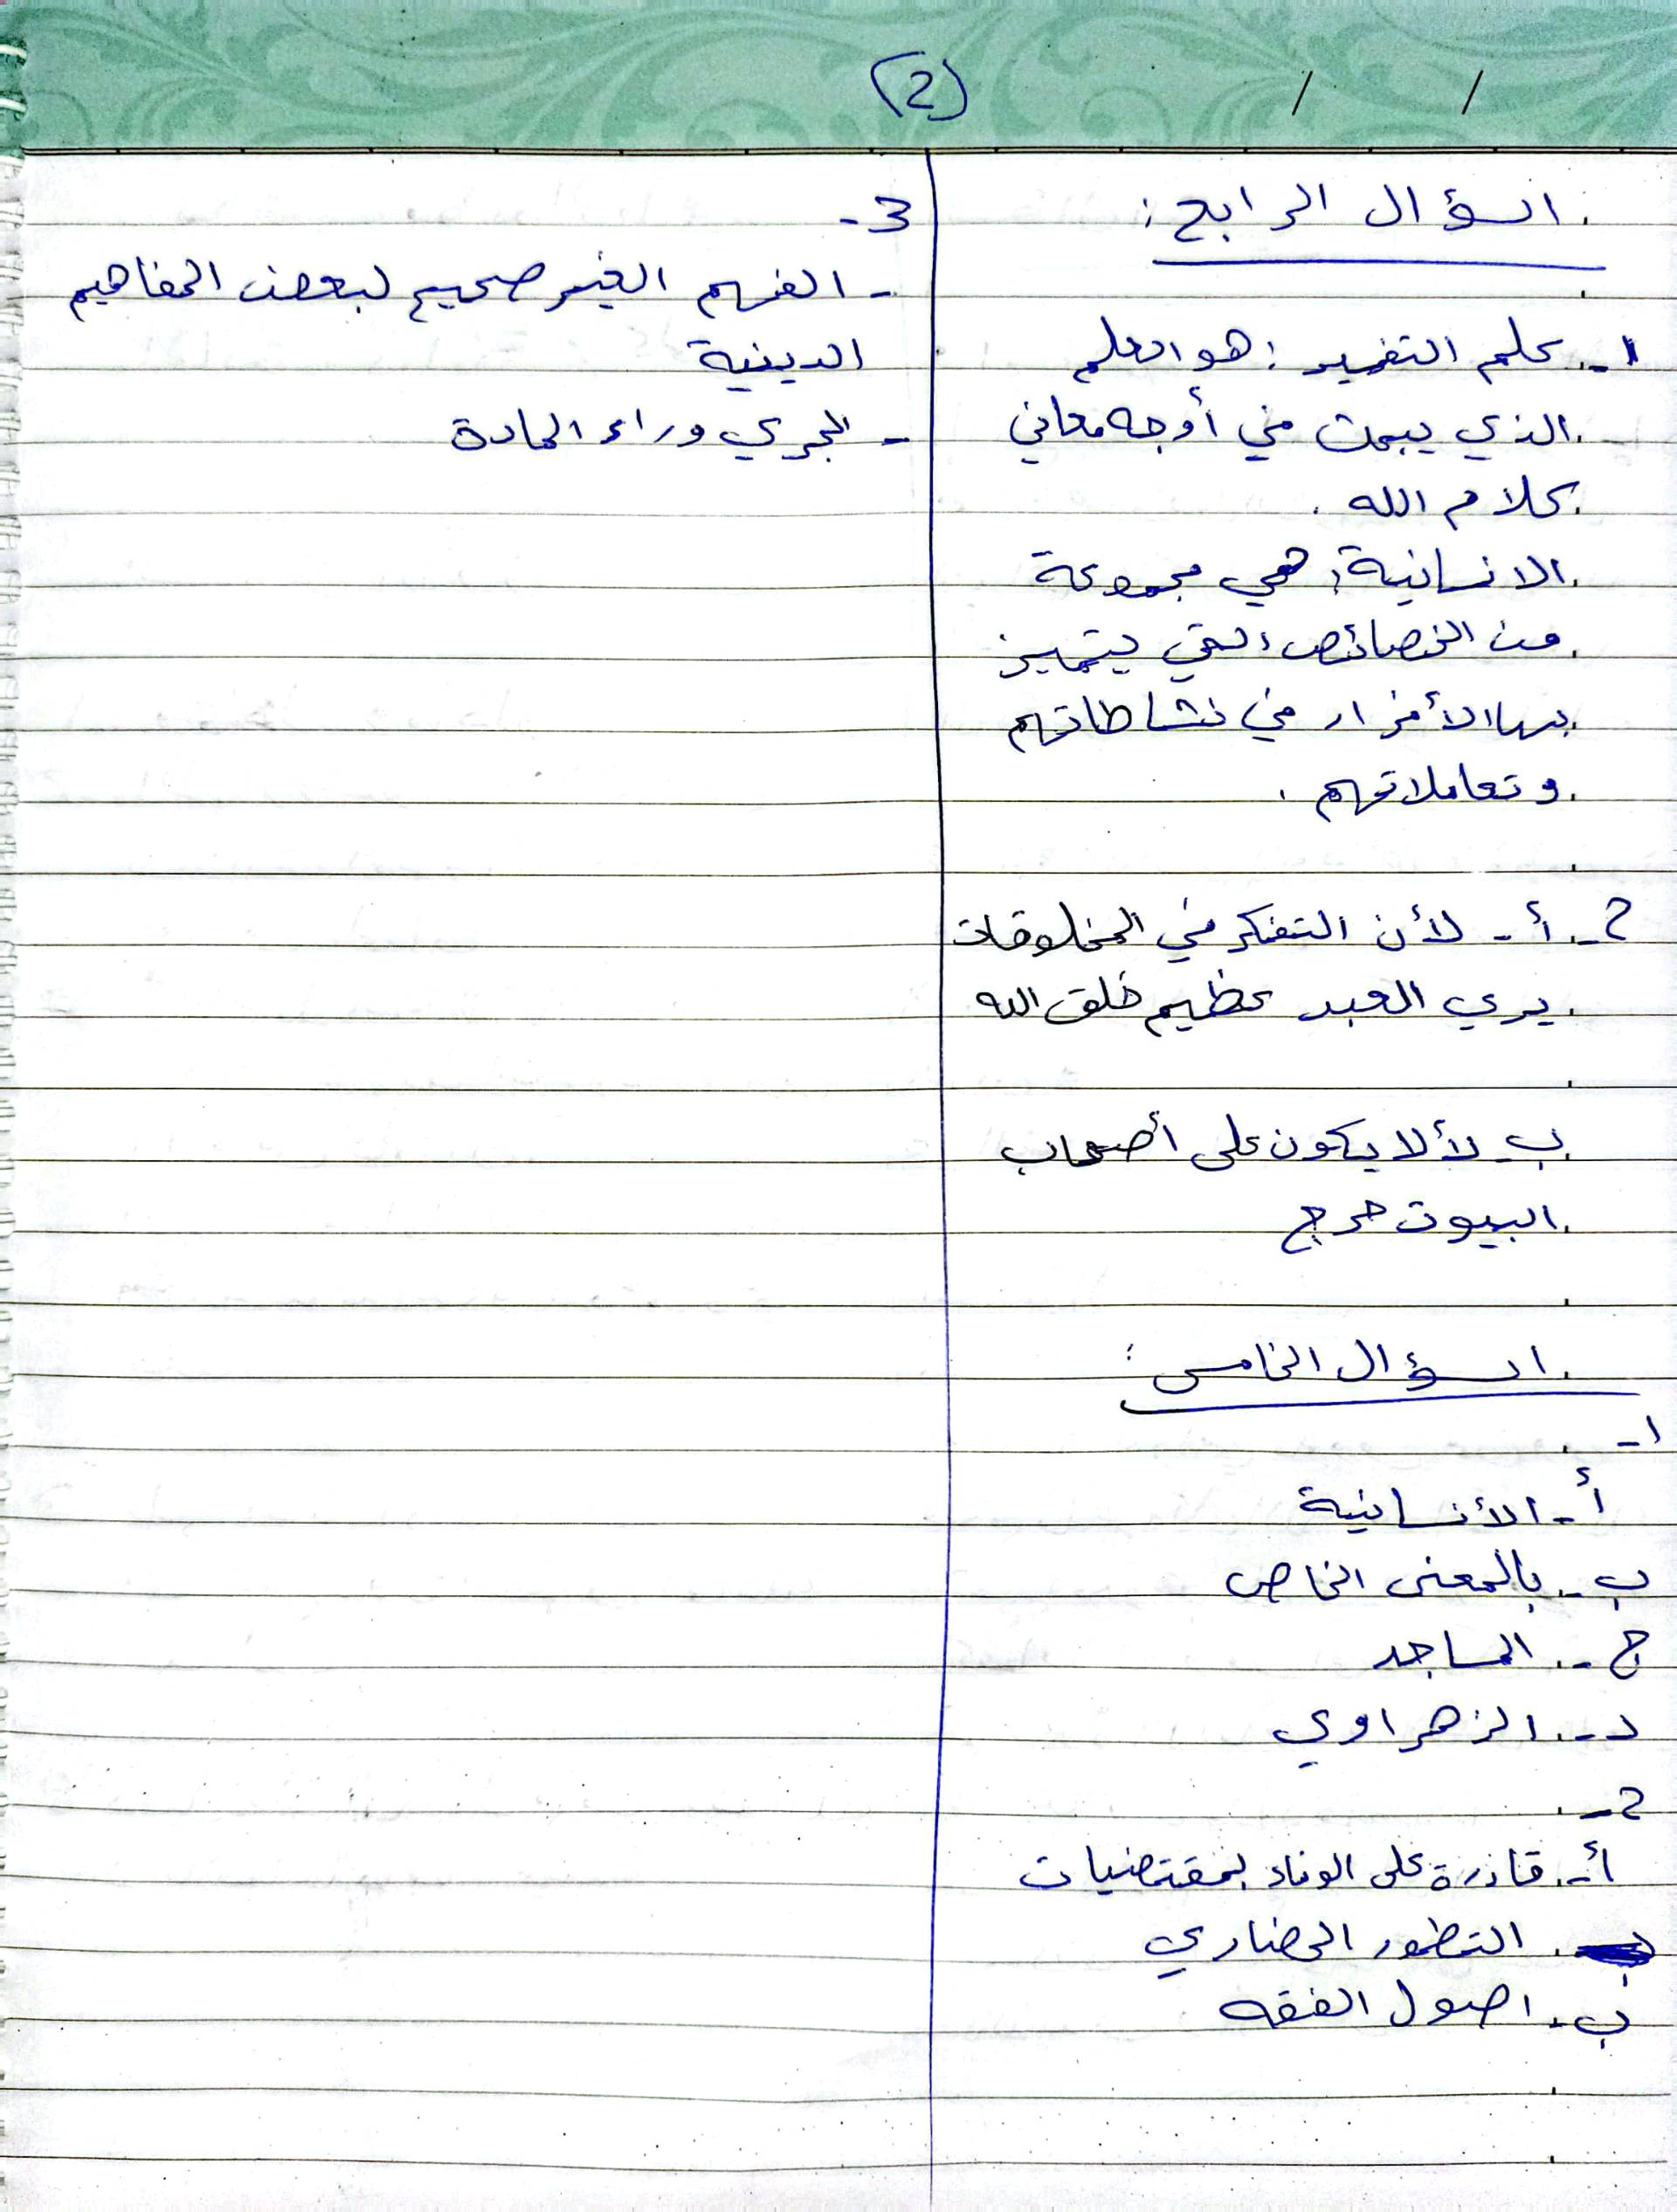 (2)
/ /
السؤال الرابع :
1- علم التفسير : هو العلم
الذي يبحث في أوجه معاني
كلام الله .
الانسانية : هي مجموعة
من الخصائص التي يتميز
بها الأفراد في نشاطاتهم
وتعاملاتهم .
2- أ- لأن التفكر في المخلوقات
يري العبد عظيم خلق الله
ب- لألا يكون على أصحاب
البيوت حرج
السؤال الخامس :
1-
أ- الأنسانية
ب- بالمعنى الخاص
ج- المساجد
د- الزهراوي
2-
أ- قادرة على الوفاء بمقتضيات
التطور الحضاري
ب- اصول الفقه
3-
- الفهم الغير صحيح لبعض المفاهيم
الدينية
- الجري وراء المادة